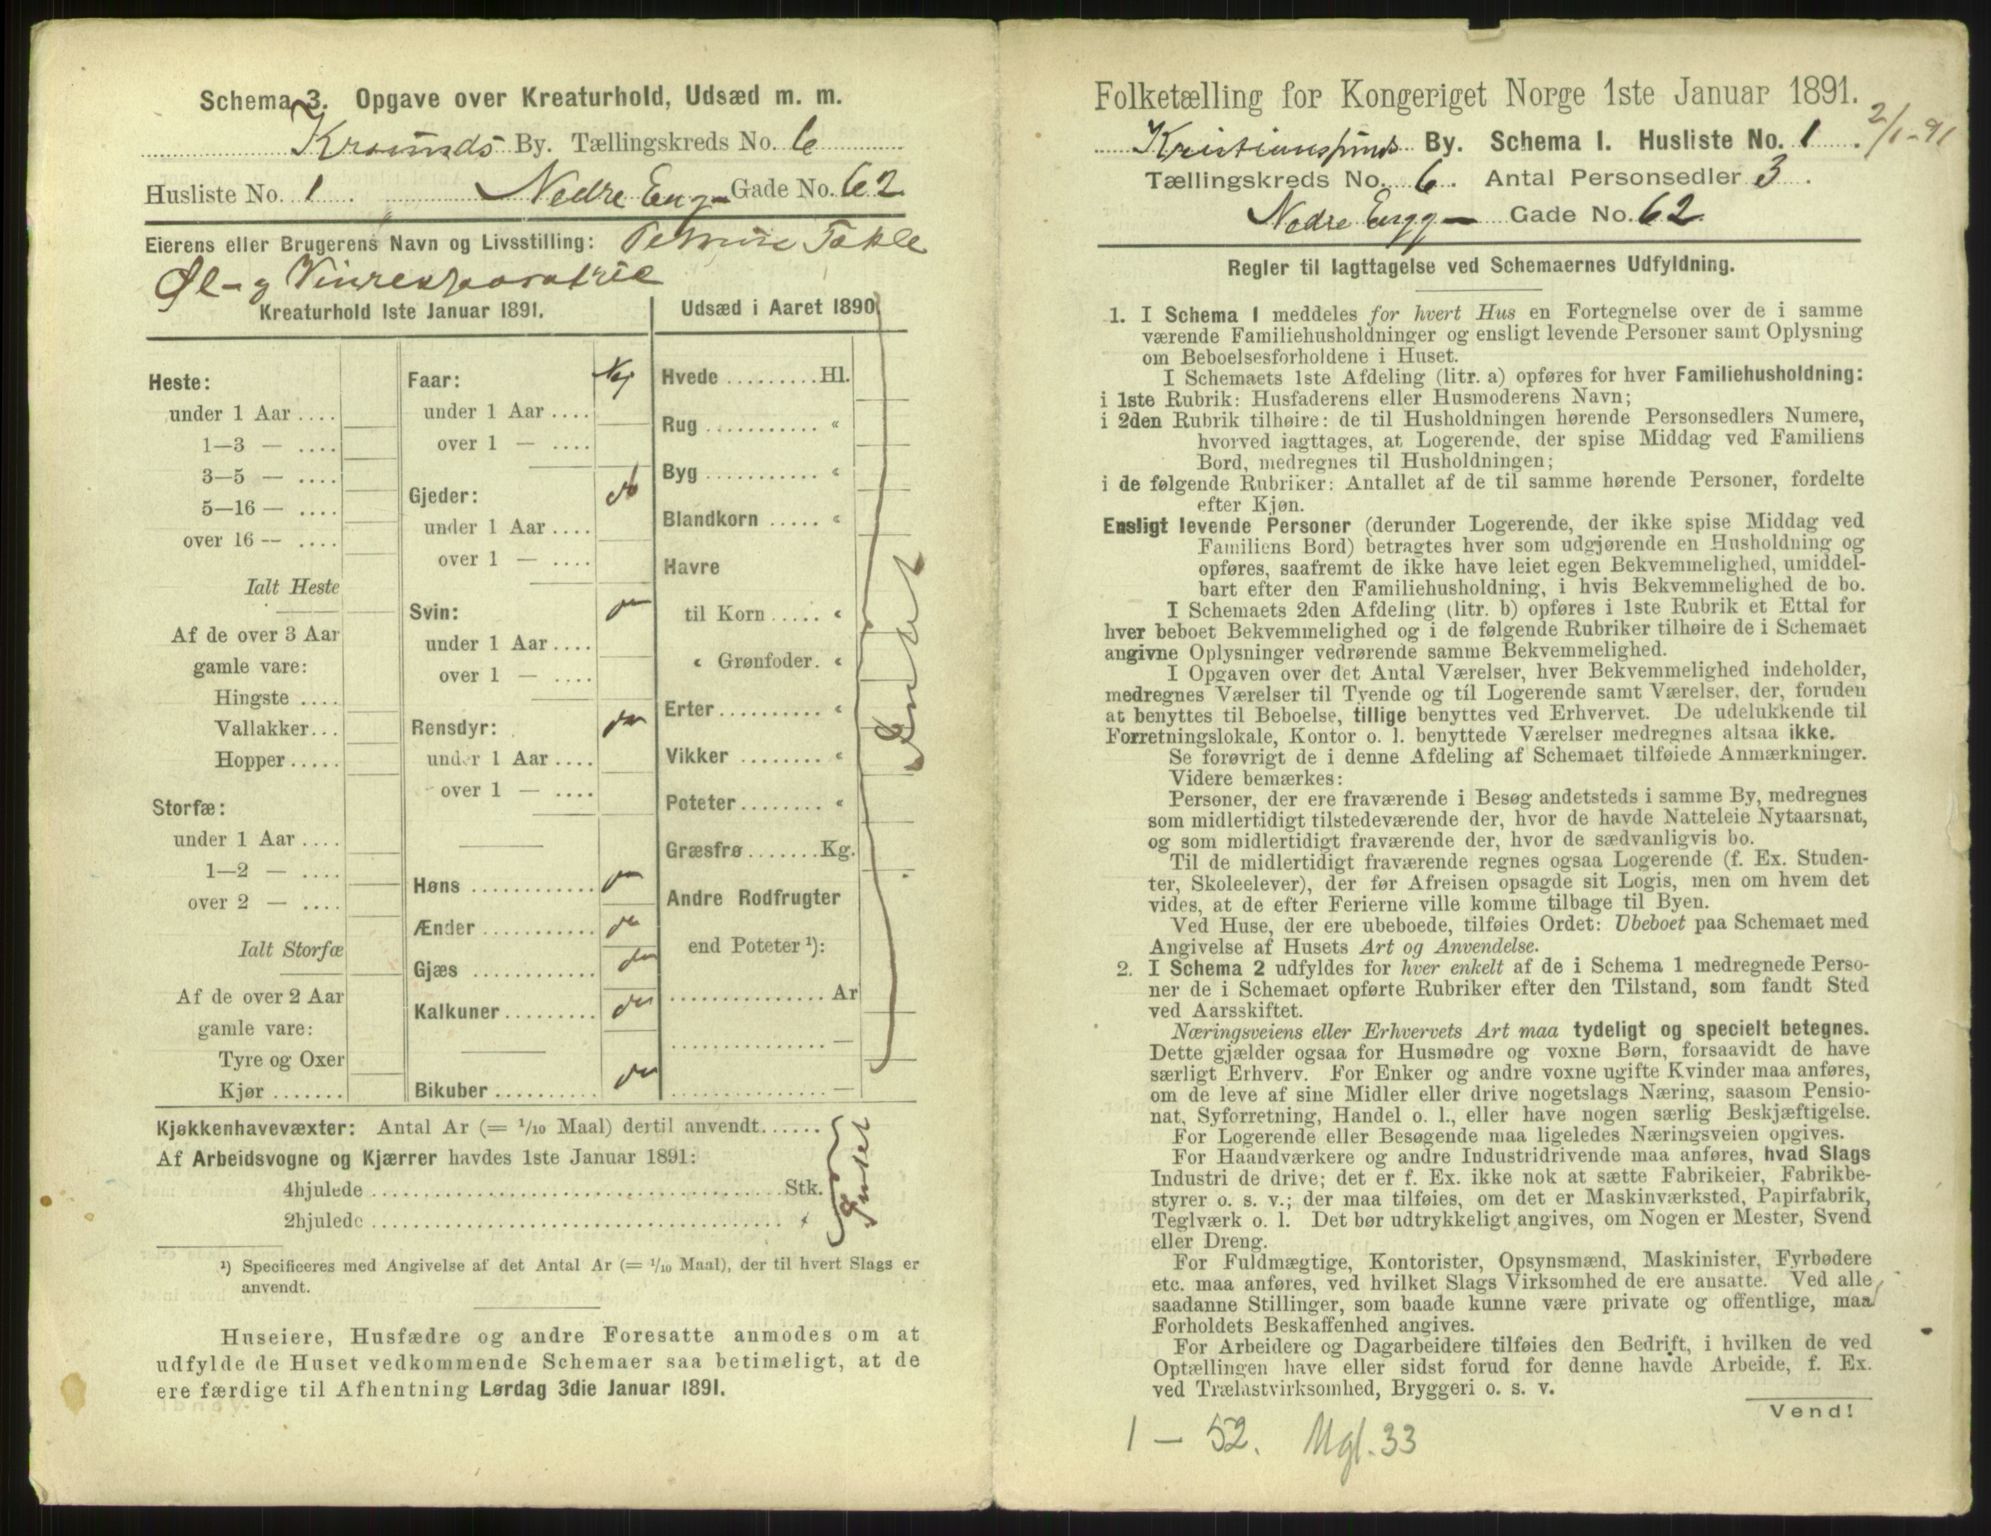 Schema 3. Opgave over Kreaturhold, Udsæd m. m.
Krsunds By. Tællingskreds No. 6
Husliste No. 1 Nedre Eng- Gade No. 62
Eierens eller Brugerens Navn og Livsstilling: Petrine Takle
Øl- og Vinrestauratrice
Kreaturhold 1ste Januar 1891.
Heste:
under 1 Aar ....
1—3 — ....
3—5 — ....
5—16 — ....
over 16 — ....
Ialt Heste
Af de over 3 Aar
gamle vare:
Hingste ....
Vallakker...
Hopper .....
Storfæ:
under 1 Aar ....
1—2 — ....
over 2 — ....
Ialt Storfæ
Af de over 2 Aar
gamle vare:
Tyre og Oxer
Kjør .......
Faar: Nej
under 1 Aar ....
over 1 — ....
Gjeder: do
under 1 Aar ....
over 1 — ....
Svin: do
under 1 Aar ....
over 1 — ....
Rensdyr: do
under 1 Aar ....
over 1 — ....
Høns ............ do
Ænder ........... do
Gjæs ............ do
Kalkuner......... do
Bikuber .......... do
Udsæd i Aaret 1890
Hvede .........Hl.
Rug ........... «
Byg ........... «
Blandkorn ..... «
Havre
til Korn ..... «
« Grønfoder. «
Erter.......... «
Vikker ........ «
Poteter........ «
Græsfrø.......Kg.
Andre Rodfrugter
end Poteter ¹):
.............. Ar
.............. —
.............. —
Intet
Kjøkkenhavevæxter: Antal Ar (= 1/10 Maal) dertil anvendt......
Af Arbeidsvogne og Kjærrer havdes 1ste Januar 1891:
4hjulede ........................................ Stk.
2hjulede ........................................ «
Intet
¹) Specificeres med Angivelse af det Antal Ar (= 1/10 Maal), der til hvert Slags er
anvendt.
Huseiere, Husfædre og andre Foresatte anmodes om at
udfylde de Huset vedkommende Schemaer saa betimeligt, at de
ere færdige til Afhentning Lørdag 3die Januar 1891.
Folketælling for Kongeriget Norge 1ste Januar 1891.
2/1-91
Kristianssunds By. Schema I. Husliste No. 1
Tællingskreds No. 6. Antal Personsedler 3.
Nedre Engg- Gade No. 62
Regler til Iagttagelse ved Schemaernes Udfyldning.
1. I Schema 1 meddeles for hvert Hus en Fortegnelse over de i samme
værende Familiehusholdninger og ensligt levende Personer samt Oplysning
om Beboelsesforholdene i Huset.
I Schemaets 1ste Afdeling (litr. a) opføres for hver Familiehusholdning:
i 1ste Rubrik: Husfaderens eller Husmoderens Navn;
i 2den Rubrik tilhøire: de til Husholdningen hørende Personsedlers Numere,
hvorved iagttages, at Logerende, der spise Middag ved Familiens
Bord, medregnes til Husholdningen;
i de følgende Rubriker: Antallet af de til samme hørende Personer, fordelte
efter Kjøn.
Ensligt levende Personer (derunder Logerende, der ikke spise Middag ved
Familiens Bord) betragtes hver som udgjørende en Husholdning og
opføres, saafremt de ikke have leiet egen Bekvemmelighed, umiddel-
bart efter den Familiehusholdning, i hvis Bekvemmelighed de bo.
I Schemaets 2den Afdeling (litr. b) opføres i 1ste Rubrik et Ettal for
hver beboet Bekvemmelighed og i de følgende Rubriker tilhøire de i Schemaet
angivne Oplysninger vedrørende samme Bekvemmelighed.
I Opgaven over det Antal Værelser, hver Bekvemmelighed indeholder,
medregnes Værelser til Tyende og til Logerende samt Værelser, der, foruden
at benyttes til Beboelse, tillige benyttes ved Erhvervet. De udelukkende til
Forretningslokale, Kontor o. l. benyttede Værelser medregnes altsaa ikke.
Se forøvrigt de i denne Afdeling af Schemaet tilføiede Anmærkninger.
Videre bemærkes:
Personer, der ere fraværende i Besøg andetsteds i samme By, medregnes
som midlertidigt tilstedeværende der, hvor de havde Natteleie Nytaarsnat,
og som midlertidigt fraværende der, hvor de sædvanligvis bo.
Til de midlertidigt fraværende regnes ogsaa Logerende (f. Ex. Studen-
ter, Skoleelever), der før Afreisen opsagde sit Logis, men om hvem det
vides, at de efter Ferierne ville komme tilbage til Byen.
Ved Huse, der ere ubeboede, tilføies Ordet: Ubeboet paa Schemaet med
Angivelse af Husets Art og Anvendelse.
2. I Schema 2 udfyldes for hver enkelt af de i Schema 1 medregnede Perso-
ner de i Schemaet opførte Rubriker efter den Tilstand, som fandt Sted
ved Aarsskiftet.
Næringsveiens eller Erhvervets Art maa tydeligt og specielt betegnes.
Dette gjælder ogsaa for Husmødre og voxne Børn, forsaavidt de have
særligt Erhverv. For Enker og andre voxne ugifte Kvinder maa anføres,
om de leve af sine Midler eller drive nogetslags Næring, saasom Pensio-
nat, Syforretning, Handel o. l., eller have nogen særlig Beskjæftigelse.
For Logerende eller Besøgende maa ligeledes Næringsveien opgives.
For Haandværkere og andre Industridrivende maa anføres, hvad Slags
Industri de drive; det er f. Ex. ikke nok at sætte Fabrikeier, Fabrikbe-
styrer o. s. v.; der maa tilføies, om det er Maskinværksted, Papirfabrik,
Teglværk o. l. Det bør udtrykkeligt angives, om Nogen er Mester, Svend
eller Dreng.
For Fuldmægtige, Kontorister, Opsynsmænd, Maskinister, Fyrbødere
etc. maa anføres, ved hvilket Slags Virksomhed de ere ansatte. Ved alle
saadanne Stillinger, som baade kunne være private og offentlige, maa
Forholdets Beskaffenhed angives.
For Arbeidere og Dagarbeidere tilføies den Bedrift, i hvilken de ved
Optællingen have eller sidst forud for denne havde Arbeide, f. Ex.
ved Trælastvirksomhed, Bryggeri o. s. v.
Vend!
1 — 52. Mgl. 33